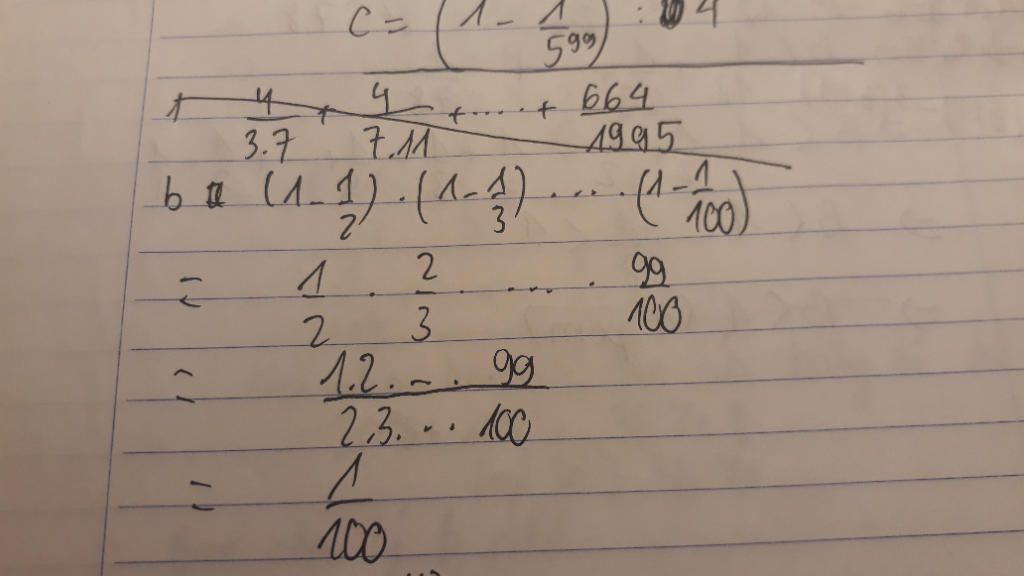 C = (1 - 1/5^99) : 4
1 4/3.7 + 4/7.11 + ..... + 664/1995
b (1 - 1/2) . (1 - 1/3) . .... (1 - 1/100)
= 1/2 . 2/3 . .... . 99/100
= 1.2. ... . 99 / 2.3. ... 100
= 1/100